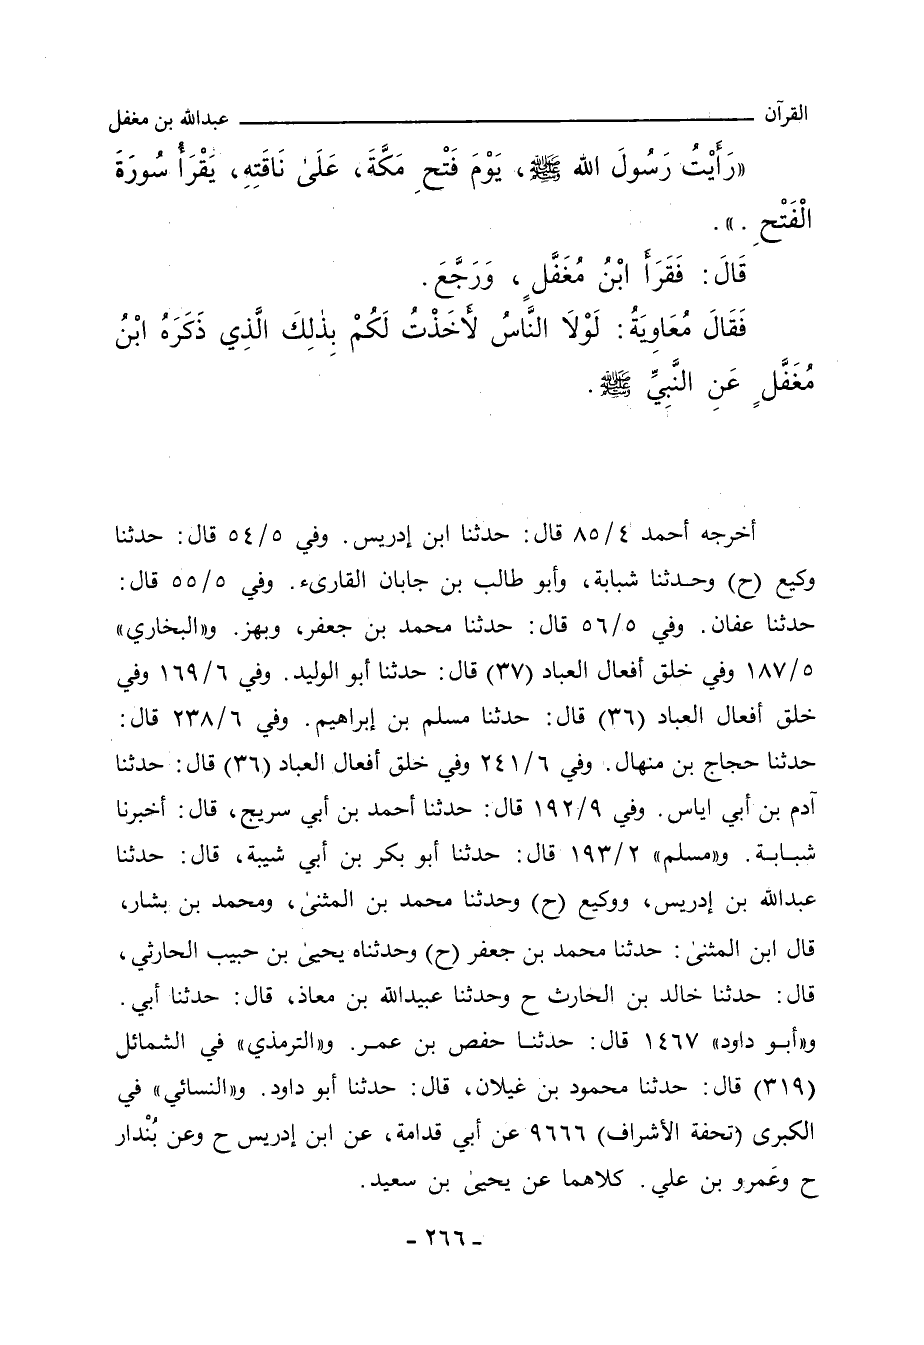 القرآن ــــــــــــــــــــ عبدالله بن مغفل
«رَأَيْتُ رَسُولَ الله ﷺ، يَوْمَ فَتْحِ مَكَّةَ، عَلَىٰ نَاقَتِهِ، يَقْرَأُ سُورَةَ
الْفَتْحِ .».
قَالَ: فَقَرَأَ ابْنُ مُغَفَّلٍ، وَرَجَّعَ.
فَقَالَ مُعَاوِيَةُ: لَوْلَا النَّاسُ لأَخَذْتُ لَكُمْ بِذٰلِكَ الَّذِي ذَكَرَهُ ابْنُ
مُغَفَّلٍ عَنِ النَّبِيِّ ﷺ.
أخرجه أحمد ٨٥/٤ قال: حدثنا ابن إدريس. وفي ٥٤/٥ قال: حدثنا
وكيع (ح) وحدثنا شبابة، وأبو طالب بن جابان القارىء. وفي ٥٥/٥ قال:
حدثنا عفان. وفي ٥٦/٥ قال: حدثنا محمد بن جعفر، وبهز. و«البخاري»
١٨٧/٥ وفي خلق أفعال العباد (٣٧) قال: حدثنا أبو الوليد. وفي ١٦٩/٦ وفي
خلق أفعال العباد (٣٦) قال: حدثنا مسلم بن إبراهيم. وفي ٢٣٨/٦ قال:
حدثنا حجاج بن منهال. وفي ٢٤١/٦ وفي خلق أفعال العباد (٣٦) قال: حدثنا
آدم بن أبي اياس. وفي ١٩٢/٩ قال: حدثنا أحمد بن أبي سريج، قال: أخبرنا
شبابة. و«مسلم» ١٩٣/٢ قال: حدثنا أبو بكر بن أبي شيبة، قال: حدثنا
عبدالله بن إدريس، ووكيع (ح) وحدثنا محمد بن المثنىٰ، ومحمد بن بشار،
قال ابن المثنىٰ: حدثنا محمد بن جعفر (ح) وحدثناه يحيىٰ بن حبيب الحارثي،
قال: حدثنا خالد بن الحارث ح وحدثنا عبيدالله بن معاذ، قال: حدثنا أبي.
و«أبو داود» ١٤٦٧ قال: حدثنا حفص بن عمر. و«الترمذي» في الشمائل
(٣١٩) قال: حدثنا محمود بن غيلان، قال: حدثنا أبو داود. و«النسائي» في
الكبرى (تحفة الأشراف) ٩٦٦٦ عن أبي قدامة، عن ابن إدريس ح وعن بُنْدار
ح وعَمرو بن علي. كلاهما عن يحيىٰ بن سعيد.
- ٢٦٦ -